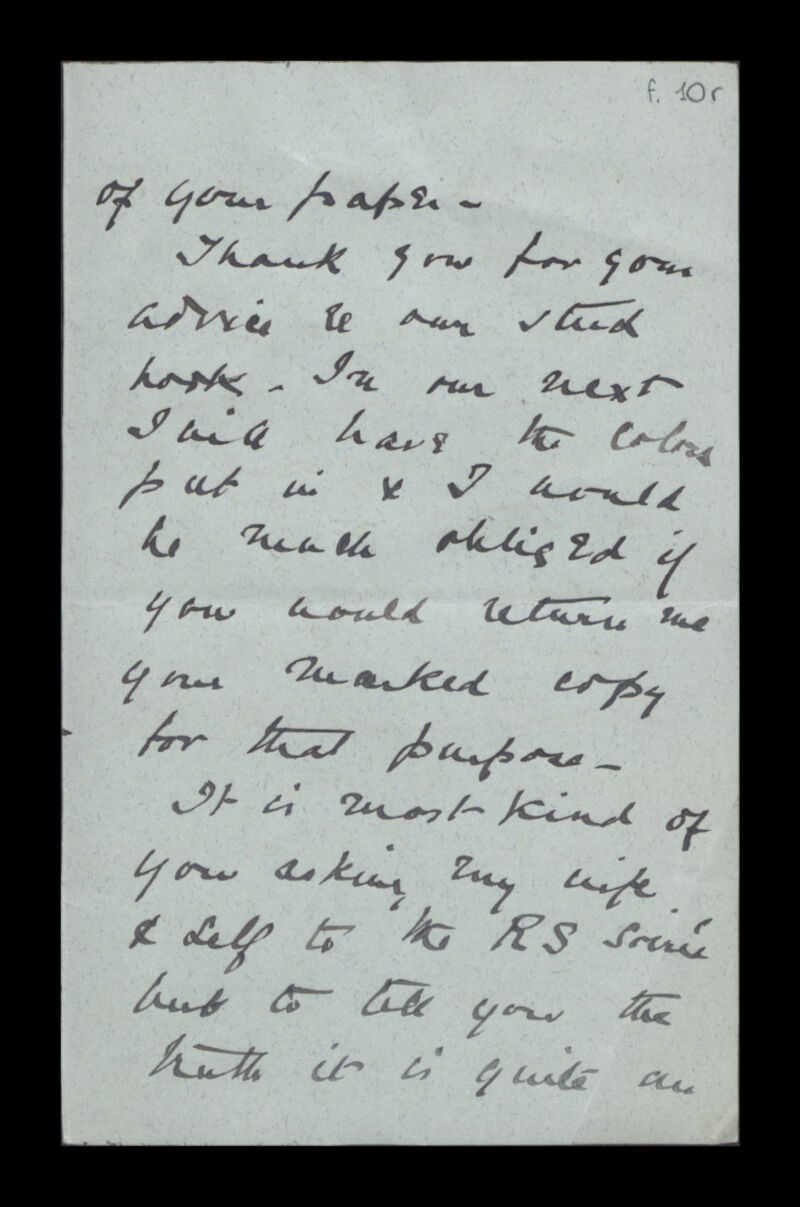 f. 10r
of your paper -
Thank you for your
advice re our stud
book - In our next
I will have the colors
put in & I would
be much obliged if
you would return me
your marked copy
for that purpose -
It is most kind of
you asking my wife
& self to the RS Soirée
but to tell you the
truth it is quite an